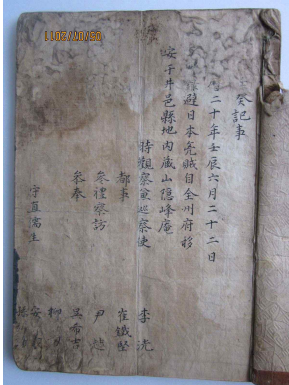 癸記事
二十年壬辰六月二十二日
避日本兇賊自全州府移
安于井邑縣地內藏山隱峰庵
時觀察兼巡察使 李洸
都事 崔鐵堅
參禮察訪 尹
參奉 吳希吉
柳
守直儒生 安
孫